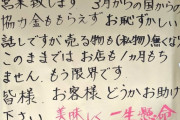 営業致します 3月からの国からの
協力金ももらえず お恥ずかしい
話しですが売る物も(私物)無くな
このままではお店も1ヵ月もち
ません もう限界です
皆様 お客様 どうかお助け
下さい 美味しく 一生懸命